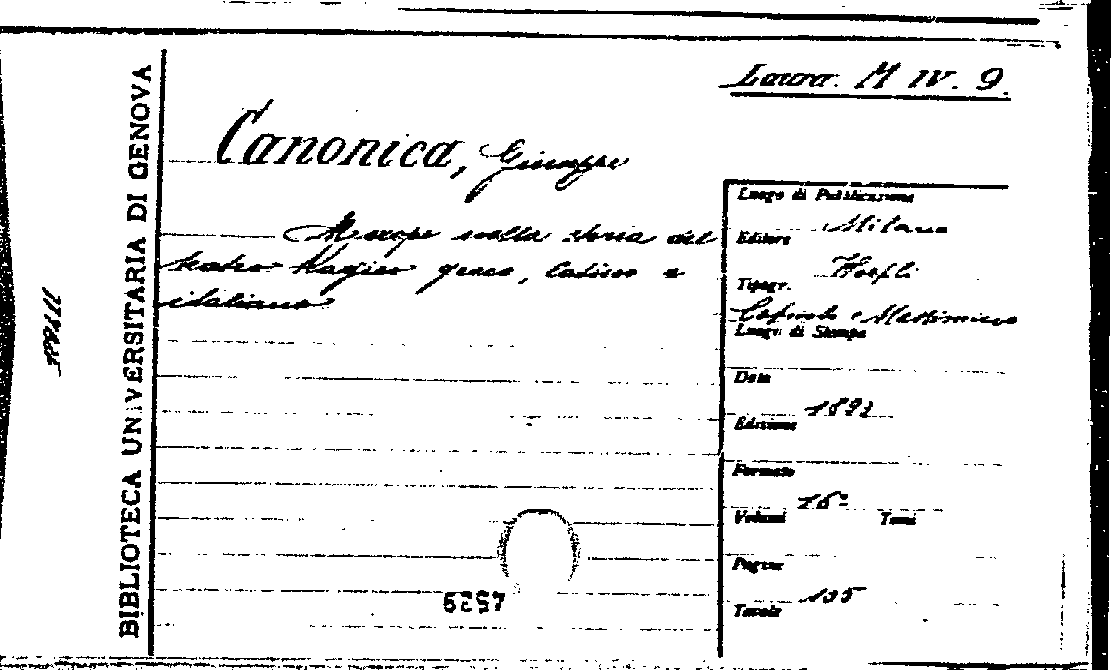 Laura. M IV. 9.
Canonica, Giuseppe
Merope nella storia del
teatro tragico greco, latino e
italiano
BIBLIOTECA UNIVERSITARIA DI GENOVA
Luogo di Pubblicazione
Milano
Editore
Hoepli
Tipogr.
Luogo di Stampa
Data
1893
Edizione
Formato
16º
Volumi Tomi
Pagine
135
Tavole